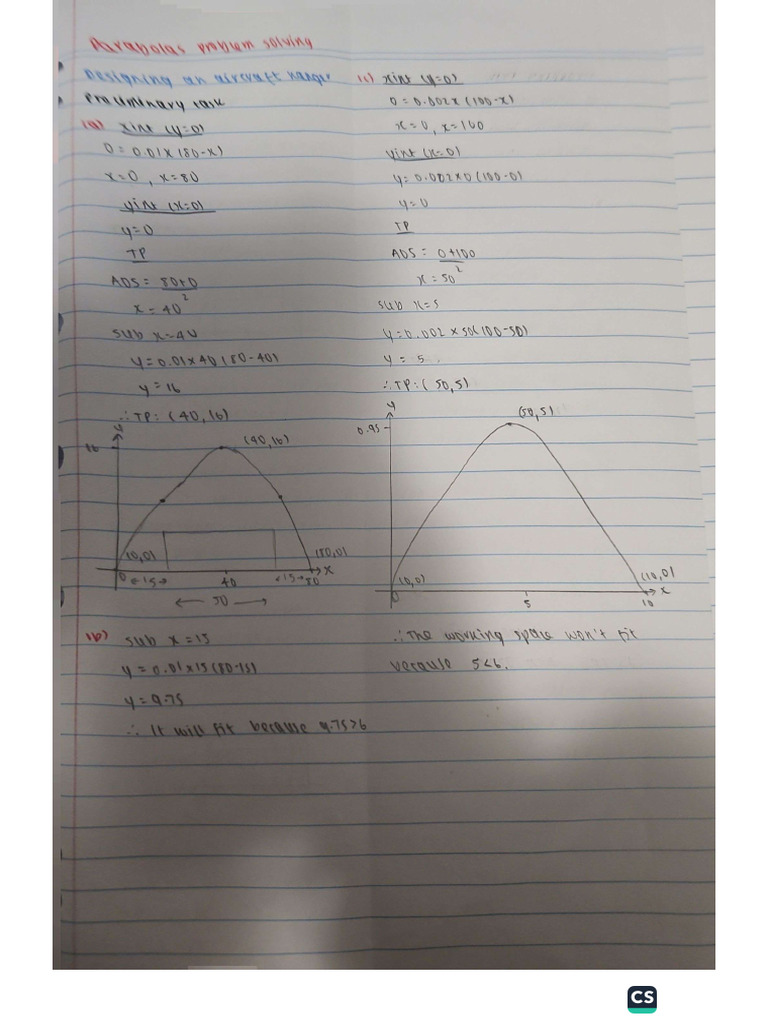 Parabolas problem solving
Designing an aircraft hanger
Preliminary task
(a) xint (y=0)
0 = 0.01x(80-x)
x=0, x=80
yint (x=0)
y=0
TP
AOS = 80+0
2
x = 40
sub x=40
y=0.01×40(80-40)
y=16
∴TP: (40,16)
y
16
(40,16)
(0,0)
(80,0)
0
←15→
40
←15→
80
x
← 50 →
(b) sub x=15
y = 0.01×15(80-15)
y = 9.75
∴ It will fit because 9.75>6
(c) xint (y=0)
0=0.002x(100-x)
x=0, x=100
yint (x=0)
y=0.002×0(100-0)
y=0
TP
AOS = 0+100
2
x = 50
sub x=5
y=0.002×50(100-50)
y = 5
∴TP: (50,5)
y
0.95
(50,5)
(0,0)
(10,0)
0
5
10
x
∴ The working space won't fit
because 5<6.
CS